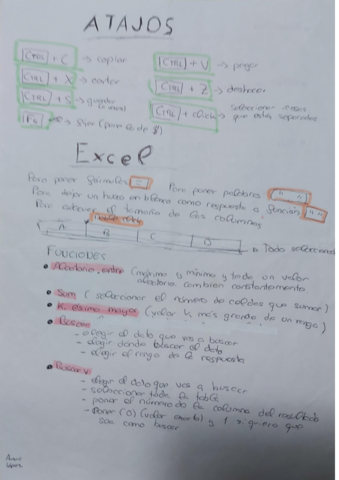 ATAJOS
CTRL + C → copiar
CTRL + V → pegar
CTRL + X → cortar
CTRL + Z → deshacer
CTRL + S → guardar
CTRL + click → seleccionar cosas
que están separadas
F4 → fijar (para el de $)
Excel
Para poner fórmulas =
Para poner palabras " "
Para dejar un hueco en blanco como respuesta a función " "
Para el tamaño de las columnas
A B C D → Todo seleccionado
FUNCIONES
• Aleatorio.entre (máximo y mínimo y todo un valor
aleatorio cambien constantemente
• Suma (seleccionar el número de celdas que sumar)
• K.esimo.mayor (valor k más grande de un rango)
• Buscar
- elegir el dato que vas a buscar
- elegir donde buscar el dato
- elegir el rango de la respuesta
• BuscarV
- elegir el dato que vas a buscar
- seleccionar toda la tabla
- poner el número de la columna del resultado
- Poner (0) (valor exacto) y 1 si quiera que
sea como buscar